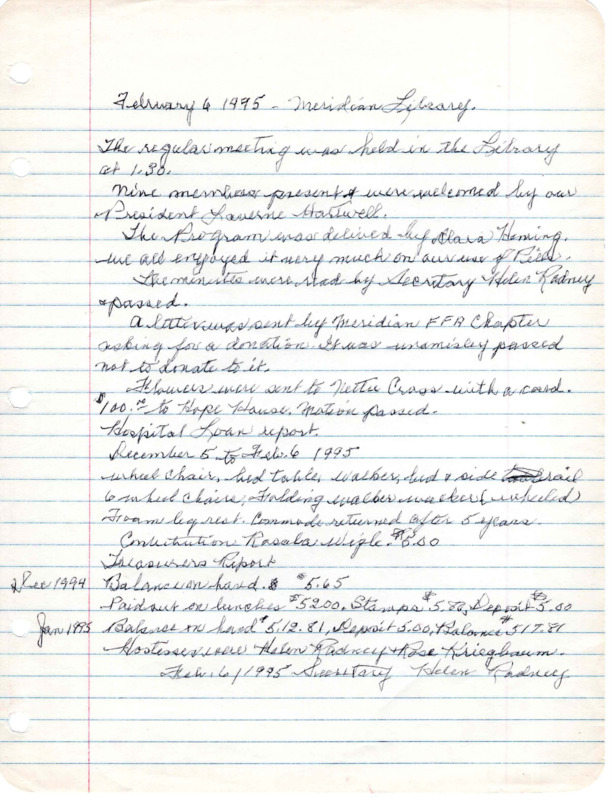 February 6 1995 - Meridian Library.
The regular meeting was held in the Library
at 1:30.
Nine members present & were welcomed by our
President Laverne Hartwell.
The Program was delived by Clara Heming.
we all enjoyed it very much on our use of Pills.
The minutes were read by Secretary Helen Radney
& passed.
A letter was sent by Meridian FFA Chapter
asking for a donation. It was unamisley passed
not to donate to it.
Flowers were sent to Nettie Cross with a card.
$100.00 to Hope House. Motion passed.
Hospital Loan report.
December 5 to Feb. 6 1995
wheel chair, bed table, walker, bed & side rail
6 wheel chairs, Folding walker walker (wheeled)
Foam leg rest. Commode returned after 5 years.
Contribution Rosala Wigle. $5.00
Treasurers Report
Dec 1994 Balance on hand. $5.65
Paid out on lunches $52.00, Stamps $5.80, Deposit $5.00
Jan 1995 Balance on hand $5,12.81, Deposit 5.00, Balance $517.81
Hostesses were Helen Radney & Rose Kriegbaum.
Feb. 6/1995 Secretary Helen Radney